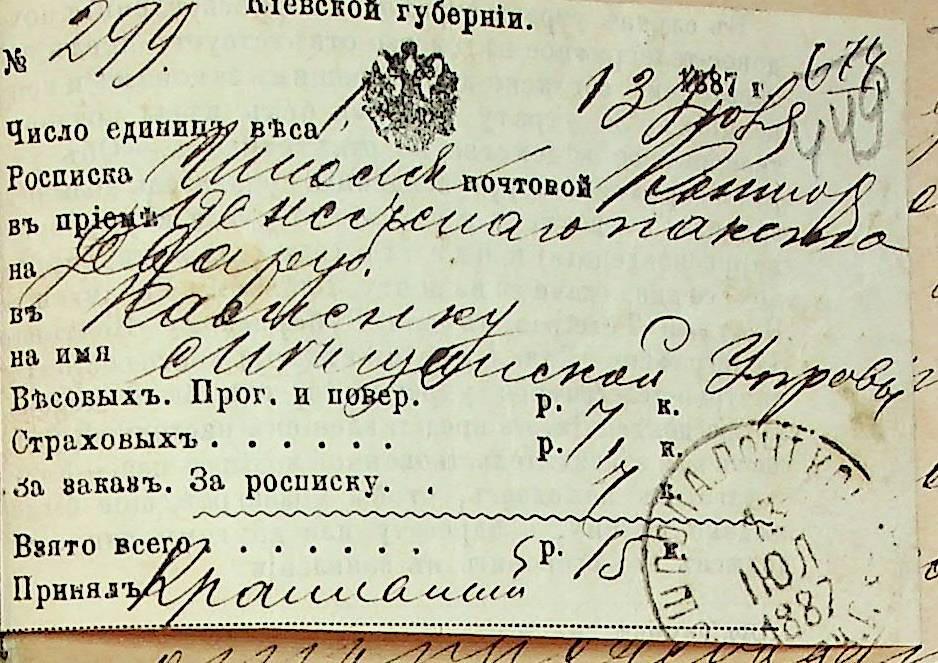 Кіевской губерніи.
№ 299. 13 Юля 1887 г. 674
449
Число единицъ вѣса 1
Росписка Шполян почтовой Конторы
въ пріемѣ денежнаго пакета
на два руб.
въ
на имя Мѣщанской Управы
Вѣсовыхъ. Прог. и повер. р. 7 к.
Страховыхъ . . . . . . р. 1 к.
За заказъ. За росписку. . 7 к.
Взято всего . . . . . . . р. 15 к.
Принялъ
ПОЧТ. КО
13
ІЮЛ
1887